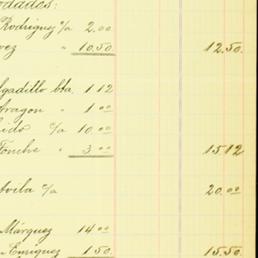 odados:
Rodriguez c/a 2.00
vez " 10.50 12.50
gadillo bta. 1.12
Aragon " 1.00
ido c/a 10.00
Fonche " 3.00 15.12
Avila c/a 20.00
Márquez 14.00
Enriquez 1.50 15.50